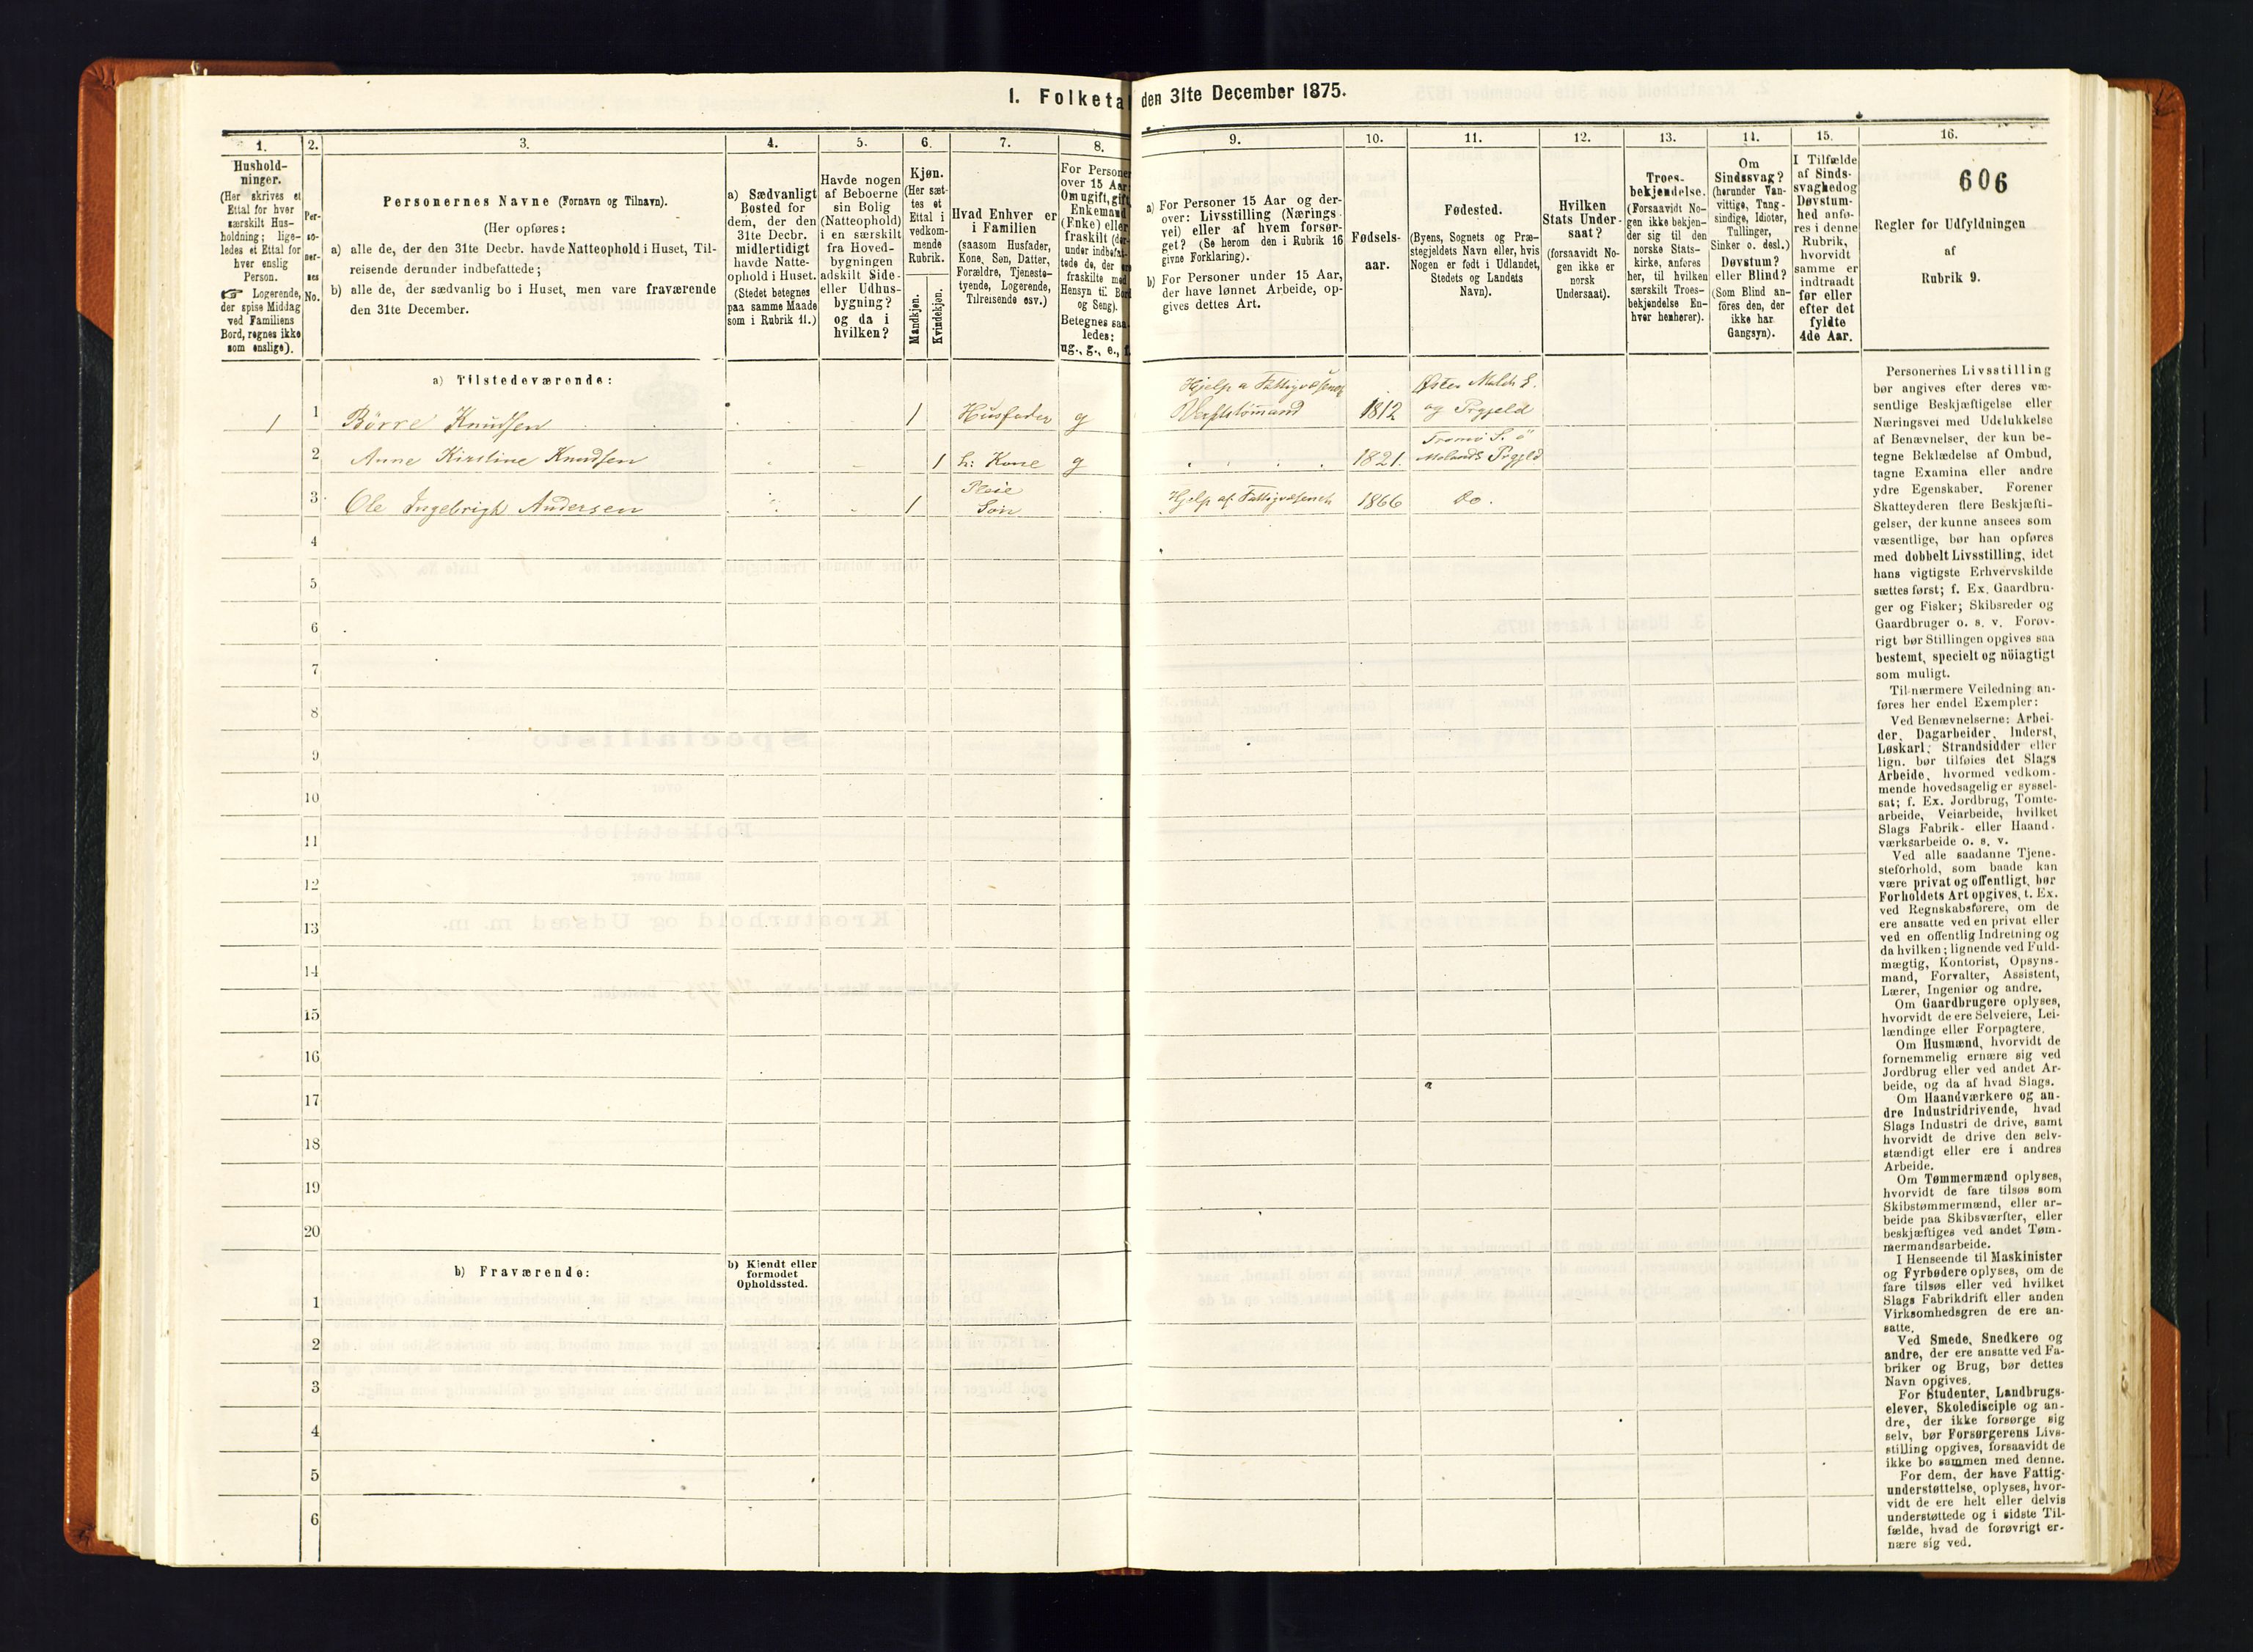 I. Folketa den 31te December 1875.
1.
Hushold-
ninger.
(Her skrives et
Ettal for hver
særskilt Hus-
holdning; lige-
ledes et Ettal for
hver enslig
Person.
☞ Logerende,
der spise Middag
ved Familiens
Bord, regnes ikke
som enslige).
2.
Per-
so-
ner-
nes
No.
3.
Personernes Navne (Fornavn og Tilnavn).
(Her opføres:
a) alle de, der den 31te Decbr. havde Natteophold i Huset, Til-
reisende derunder indbefattede;
b) alle de, der sædvanlig bo i Huset, men vare fraværende
den 31te December.
4.
a) Sædvanligt
Bosted for
dem, der den
31te Decbr.
midlertidigt
havde Natte-
ophold i Huset.
(Stedet betegnes
paa samme Maade
som i Rubrik 11.)
5.
Havde nogen
af Beboerne
sin Bolig
(Natteophold)
i en særskilt
fra Hoved-
bygningen
adskilt Side-
eller Udhus-
bygning?
og da i
hvilken?
6.
Kjøn.
(Her sæt-
tes et
Ettal i
vedkom-
mende
Rubrik.
Mandkjøn.
Kvindekjøn.
7.
Hvad Enhver er
i Familien
(saasom Husfader,
Kone, Søn, Datter,
Forældre, Tjeneste-
tyende, Logerende,
Tilreisende osv.)
8.
For Persone
over 15 Aar
Om ugift, gif
Enkemand
(Enke) eller
fraskilt (der-
under indbefat-
tede de, der ere
fraskilte med
Hensyn til Bord
og Seng).
Betegnes saa-
ledes:
ug., g., e., f.
9.
a) For Personer 15 Aar og der-
over: Livsstilling (Nærings-
vei) eller af hvem forsør-
get? (Se herom den i Rubrik 16
givne Forklaring).
b) For Personer under 15 Aar,
der have lønnet Arbeide, op-
gives dettes Art.
10.
Fødsels-
aar.
11.
Fødested.
(Byens, Sognets og Præ-
stegjeldets Navn eller, hvis
Nogen er født i Udlandet,
Stedets og Landets
Navn).
12.
Hvilken
Stats Under-
saat?
(forsaavidt No-
gen ikke er
norsk
Undersaat).
13.
Troes-
bekjendelse.
(Forsaavidt No-
gen ikke bekjen-
der sig til den
norske Stats-
kirke, anføres
her, til hvilken
særskilt Troes-
bekjendelse En-
hver henhører).
14.
Om
Sindssvag?
(herunder Van-
vittige, Tung-
sindige, Idioter,
Sinker o. desl.)
Døvstum?
eller Blind?
(Som Blind an-
føres den, der
ikke har
Gangsyn).
15.
I Tilfælde
af Sinds-
svaghed og
Døvstum-
hed anfø-
res i denne
Rubrik,
hvorvidt
samme er
indtraadt
før eller
efter det
fyldte
4de Aar.
16.
606
Regler for Udfyldningen
af
Rubrik 9.
a) Tilstedeværende:
1 1 Børre Knudsen 1 Husfader g Hjelp a Fattigvæsenet 1812 Øster Molds S. og Prgjeld
2 Anne Kirstine Knudsen 1 h: Kone g 1821. Tromø S. ø Molands Prgjeld
3 Ole Ingebrigt Andersen 1 Pleie Søn Hjelp af Fattigvæsenet 1866 Do.
4
5
6
7
8
9
10
11
12
13
14
15
16
17
18
19
20
b) Fraværende:
b) Kjendt eller
formodet
Opholdssted.
1
2
3
4
5
6
Personernes Livsstilling
bør angives efter deres væ-
sentlige Beskjæftigelse eller
Næringsvei med Udelukkelse
af Benævnelser, der kun be-
tegne Beklædelse af Ombud,
tagne Examina eller andre
ydre Egenskaber. Forener
Skatteyderen flere Beskjæfti-
gelser, der kunne ansees som
væsentlige, bør han opføres
med dobbelt Livsstilling, idet
hans vigtigste Erhvervskilde
sættes først; f. Ex. Gaardbru-
ger og Fisker; Skibsreder og
Gaardbruger o. s. v. Forøv-
rigt bør Stillingen opgives saa
bestemt, specielt og nøiagtigt
som muligt.
Til nærmere Veiledning an-
føres her endel Exempler:
Ved Benævnelserne: Arbei-
der, Dagarbeider, Inderst,
Løskarl, Strandsidder eller
lign. bør tilføies det Slags
Arbeide, hvormed vedkom-
mende hovedsagelig er syssel-
sat; f. Ex. Jordbrug, Tomte-
arbeide, Veiarbeide, hvilket
Slags Fabrik- eller Haand-
værksarbeide o. s. v.
Ved alle saadanne Tjene-
steforhold, som baade kan
være privat og offentligt, bør
Forholdets Art opgives, t. Ex.
ved Regnskabsførere, om de
ere ansatte ved en privat eller
ved en offentlig Indretning og
da hvilken; lignende ved Fuld-
mægtig, Kontorist, Opsyns-
mand, Forvalter, Assistent,
Lærer, Ingeniør og andre.
Om Gaardbrugere oplyses,
hvorvidt de ere Selveiere, Lei-
lændinge eller Forpagtere.
Om Husmænd, hvorvidt de
fornemmelig ernære sig ved
Jordbrug eller ved andet Ar-
beide, og da af hvad Slags.
Om Haandværkere og an-
dre Industridrivende, hvad
Slags Industri de drive, samt
hvorvidt de drive den selv-
stændigt eller ere i andres
Arbeide.
Om Tømmermænd oplyses,
hvorvidt de fare tilsøs som
Skibstømmermænd, eller ar-
beide paa Skibsværfter, eller
beskjæftiges ved andet Tøm-
mermandsarbeide.
I Henseende til Maskinister
og Fyrbødere oplyses, om de
fare tilsøs eller ved hvilket
Slags Fabrikdrift eller anden
Virksomhedsgren de ere an-
satte.
Ved Smede, Snedkere og
andre, der ere ansatte ved Fa-
briker og Brug, bør dettes
Navn opgives.
For Studenter, Landbrugs-
elever, Skoledisciple og an-
dre, der ikke forsørge sig
selv, bør Forsørgerens Livs-
stilling opgives, forsaavidt de
ikke bo sammen med denne.
For dem, der have Fattig-
understøttelse, oplyses, hvor-
vidt de ere helt eller delvis
understøttede og i sidste Til-
fælde, hvad de forøvrigt er-
nære sig ved.